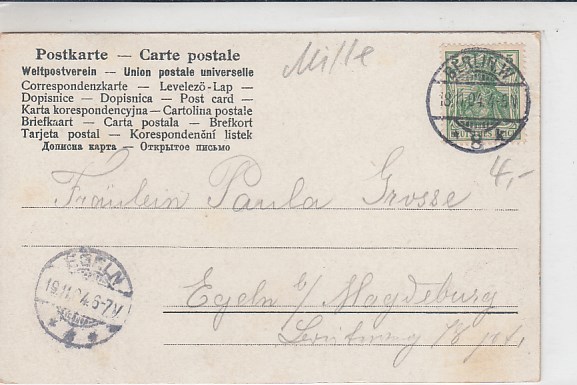 Postkarte — Carte postale
Weltpostverein — Union postale universelle
Correspondenzkarte — Levelező-Lap —
Dopisnice — Dopisnica — Post card —
Karta korespondencyjna — Cartolina postale
Briefkaart — Carta postala — Brefkort
Tarjeta postal — Korespondenční listek
Дописна карта — Открытое письмо
Mille
BERLIN.W.
8
K
5
4,-
Fräulein Paula Grosse
EGELN
19.11.04.6-7V.
Egeln b/ Magdeburg